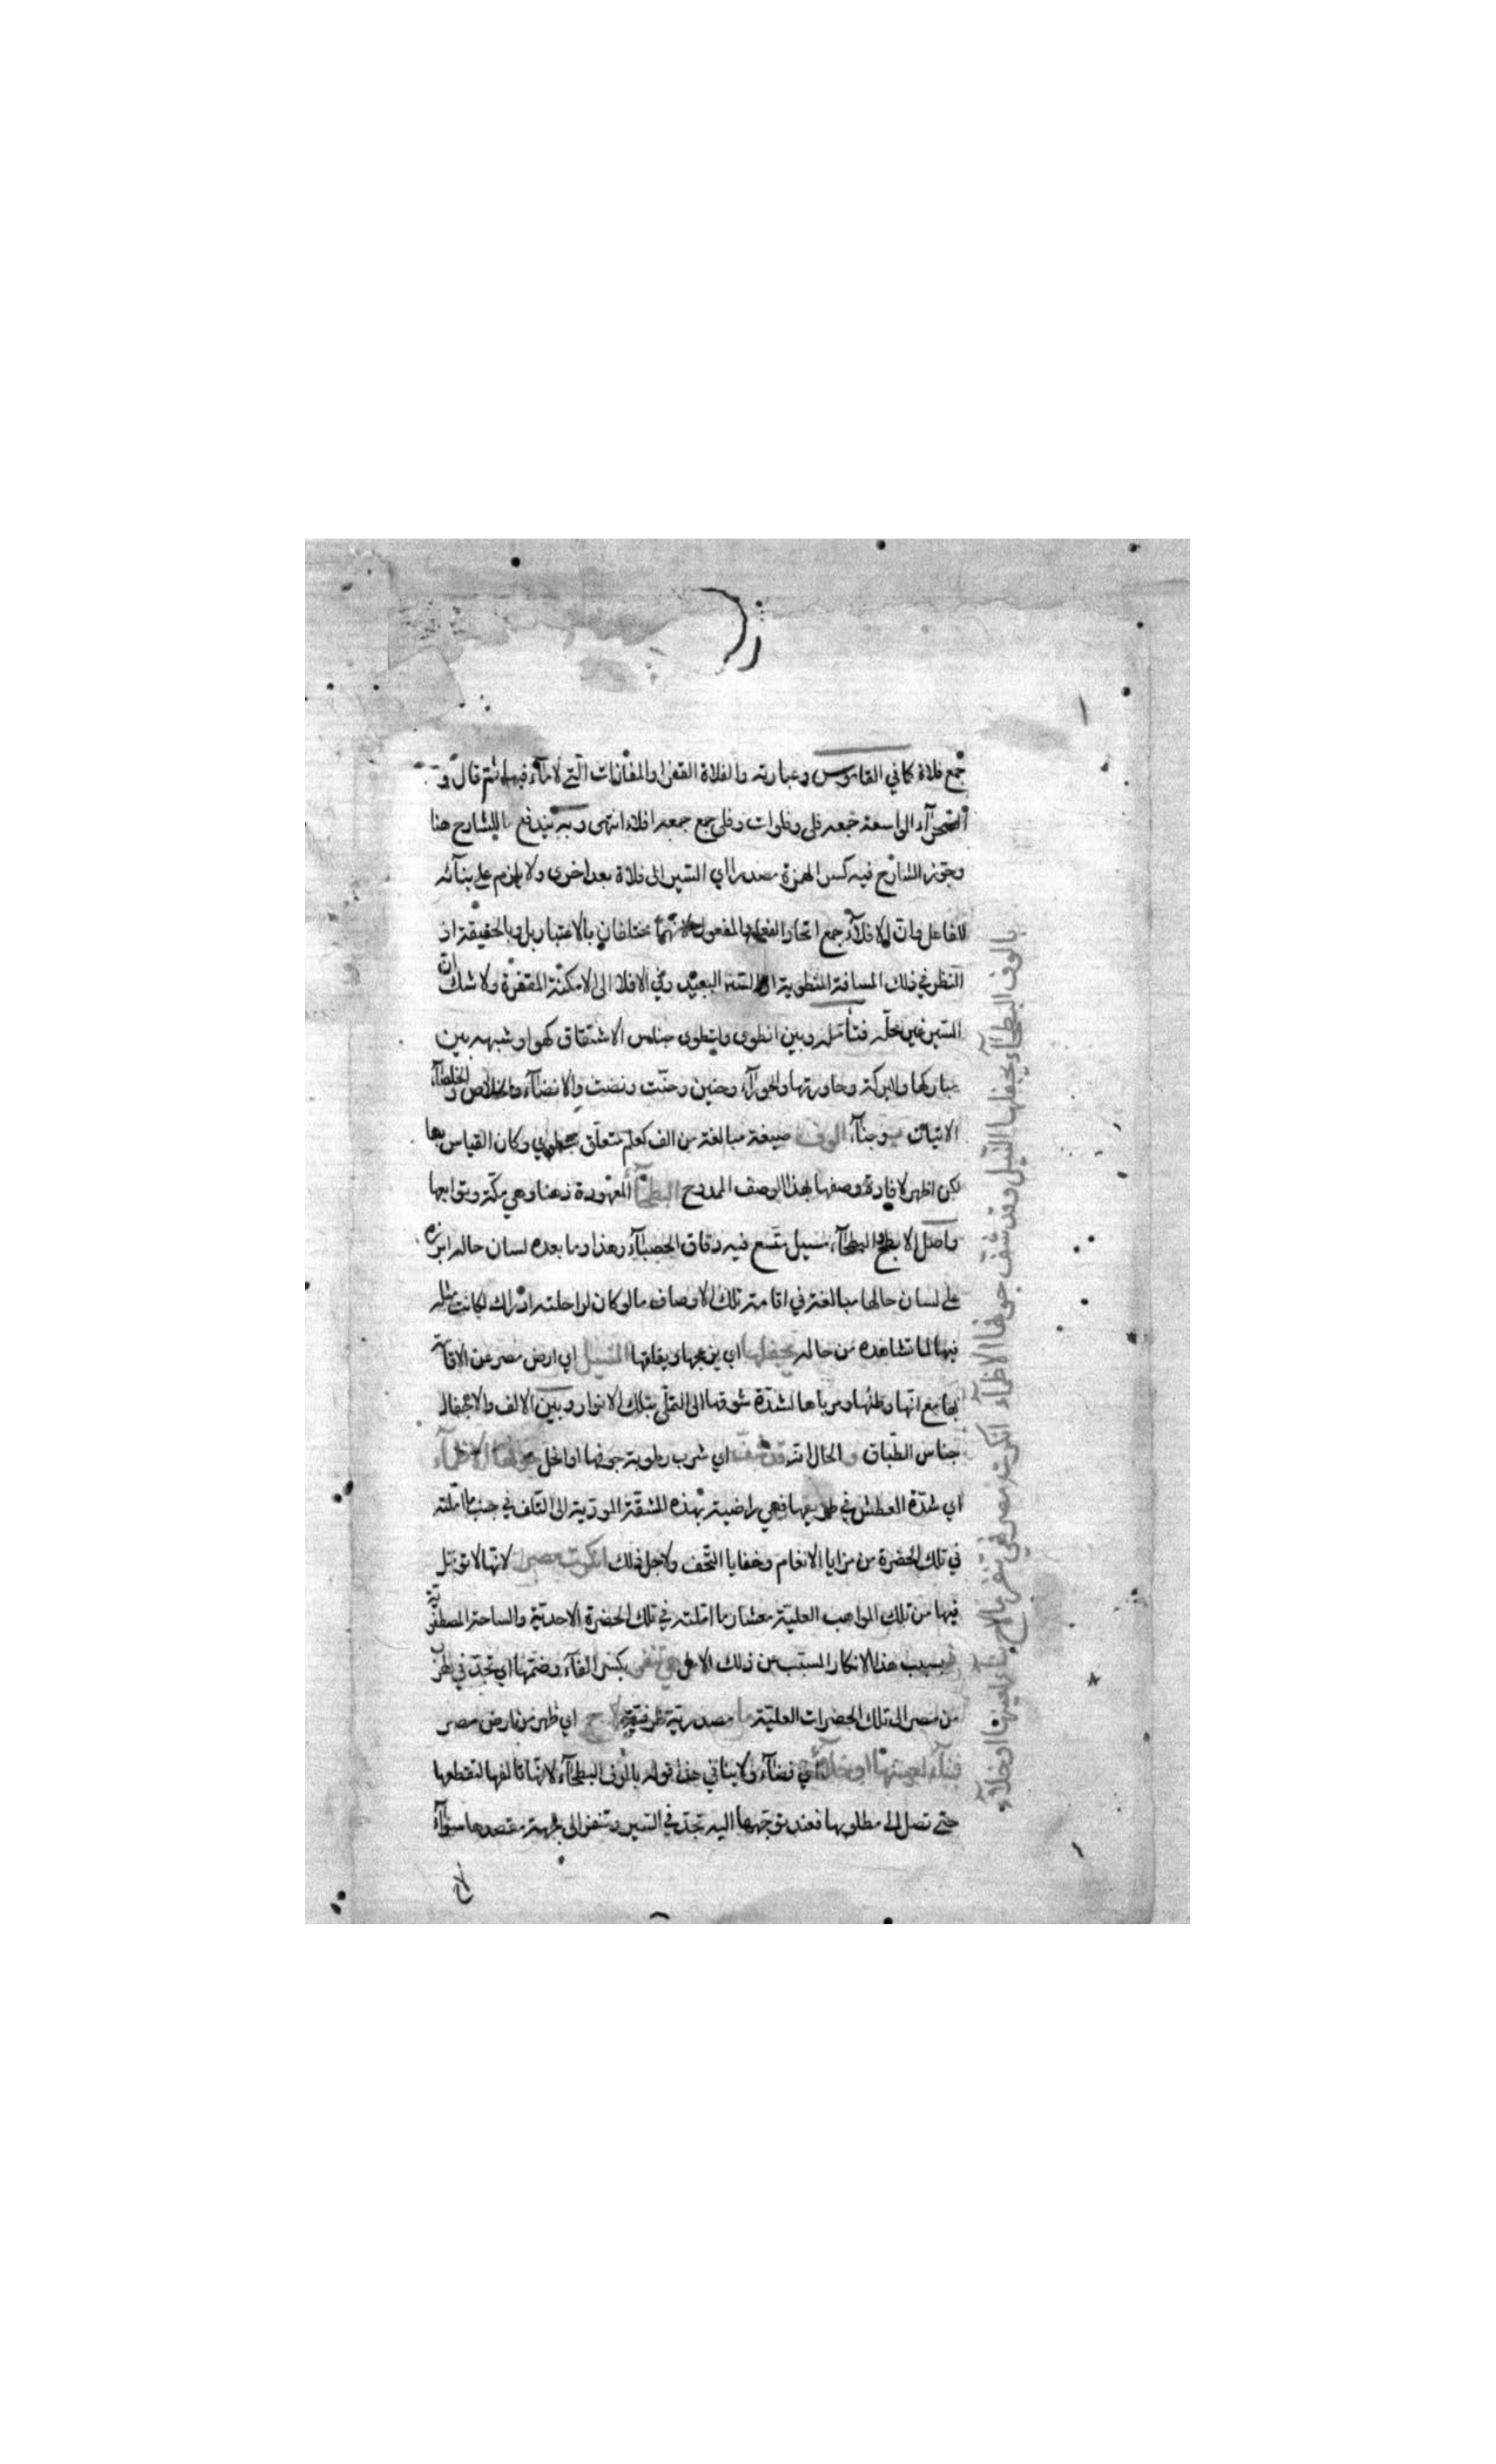 جمع فلاة كما في القاموس وعبارته والفلاة القفر او المفازات التي لا ماء فيها ثم قال و
الصحراء الواسعة جمعه فلى وفلوات وفلي جمع جمعه افلاء انتهى وبه يندفع ما للشارح هنا
وجوز الشارح فيه كسر الهمزة مصدرا اي السير الى فلاة بعد اخرى ولا يلزم على بنائه
للفاعل وان الافلاء جمع اتحاد الفعل والمفعول لانهما مختلفان بالاعتبار بل وبالحقيقة اذ
النظر في ذلك المسافة المنطوية السير البعيد وفي الافلا الى الامكنة المقفرة ولا شك ان
السير غير محله فتأمله وبين انطوى وينطوي جناس الاشتقاق كهو او شبهه بين
مباركها والبركة وحاورتها والحوراء وحنين وحنت ونضت والانضاء والخلاص و الخلطاء
الاتيات وجناء الوف صيغة مبالغة من الف كعلم متعلق وكان القياس بها
لكن اظهر لافادة وصفها بهذا الوصف الممدوح البطحاء المعهودة ذهنا وهي مكة وتوابعها
واصل الابطح والبطحاء مسيل متسع فيه دقاق الحصباء وهذا وما بعده لسان حاله ابرزه
على لسان حالها مبالغة في اقامة تلك الاوصاف ما لو كان لراحلته ادراك لكانت مثله
فيها لما تشاهده من حاله يجفلها اي يزعجها ويقلقها النيل اي ارض مصر عن الاقامة
بها مع انها وطنها ومرباها لشدة شوقها الى التملي بتلك الانوار وبين الالف والاجفال
جناس الطباق و الحال انه قد شف اي شرب رطوبة جوفها او انحل جوفها الاظماء
اي شدة العطش في طريقها فهي راضية بهذه المشقة المودية الى التلف في جنب ما املته
في تلك الحضرة من مزايا الانعام وخفايا التحف ولاجل ذلك انكرت مصر لانها لا تؤمل
فيها من تلك المواهب العلية معشار ما املته في تلك الحضرة الاحدية والساحة المصطفوية
فبسبب هذا الانكار المسبب من ذلك الامل هي تنفر بكسر الفاء وضمها اي تجد في الهرب
من مصر الى تلك الحضرات العلية ما مصدرية ظرفية لاح اي ظهر من ارض مصر
بناء لعينها او خلاء اي فضاء ولا ينافي هذا قوله بالوف البطحاء لانها تالفها لتقطعها
حتى تصل الى مطلوبها فعند توجهها اليه تجد في السير وتنفر الى جهة مقصدها سواء
لاح
بالوف البطحاء يجفلها النيل وقد شف جوفها الاظماء انكرت مصر فهي تنفر ما لاح بناء لعينها او خلاء